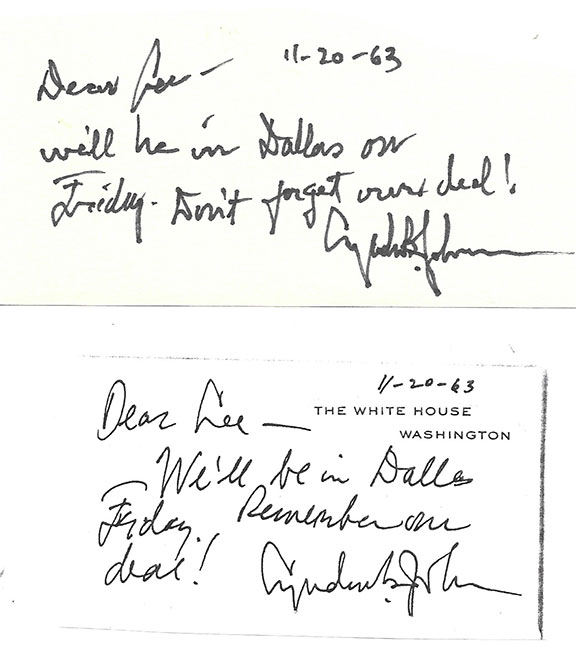 11-20-63
Dear Lee -
we'll be in Dallas on
Friday. Don't forget our deal!
Lyndon B. Johnson
11-20-63
THE WHITE HOUSE
WASHINGTON
Dear Lee —
We'll be in Dallas
Friday. Remember our
deal!
Lyndon B. Johnson